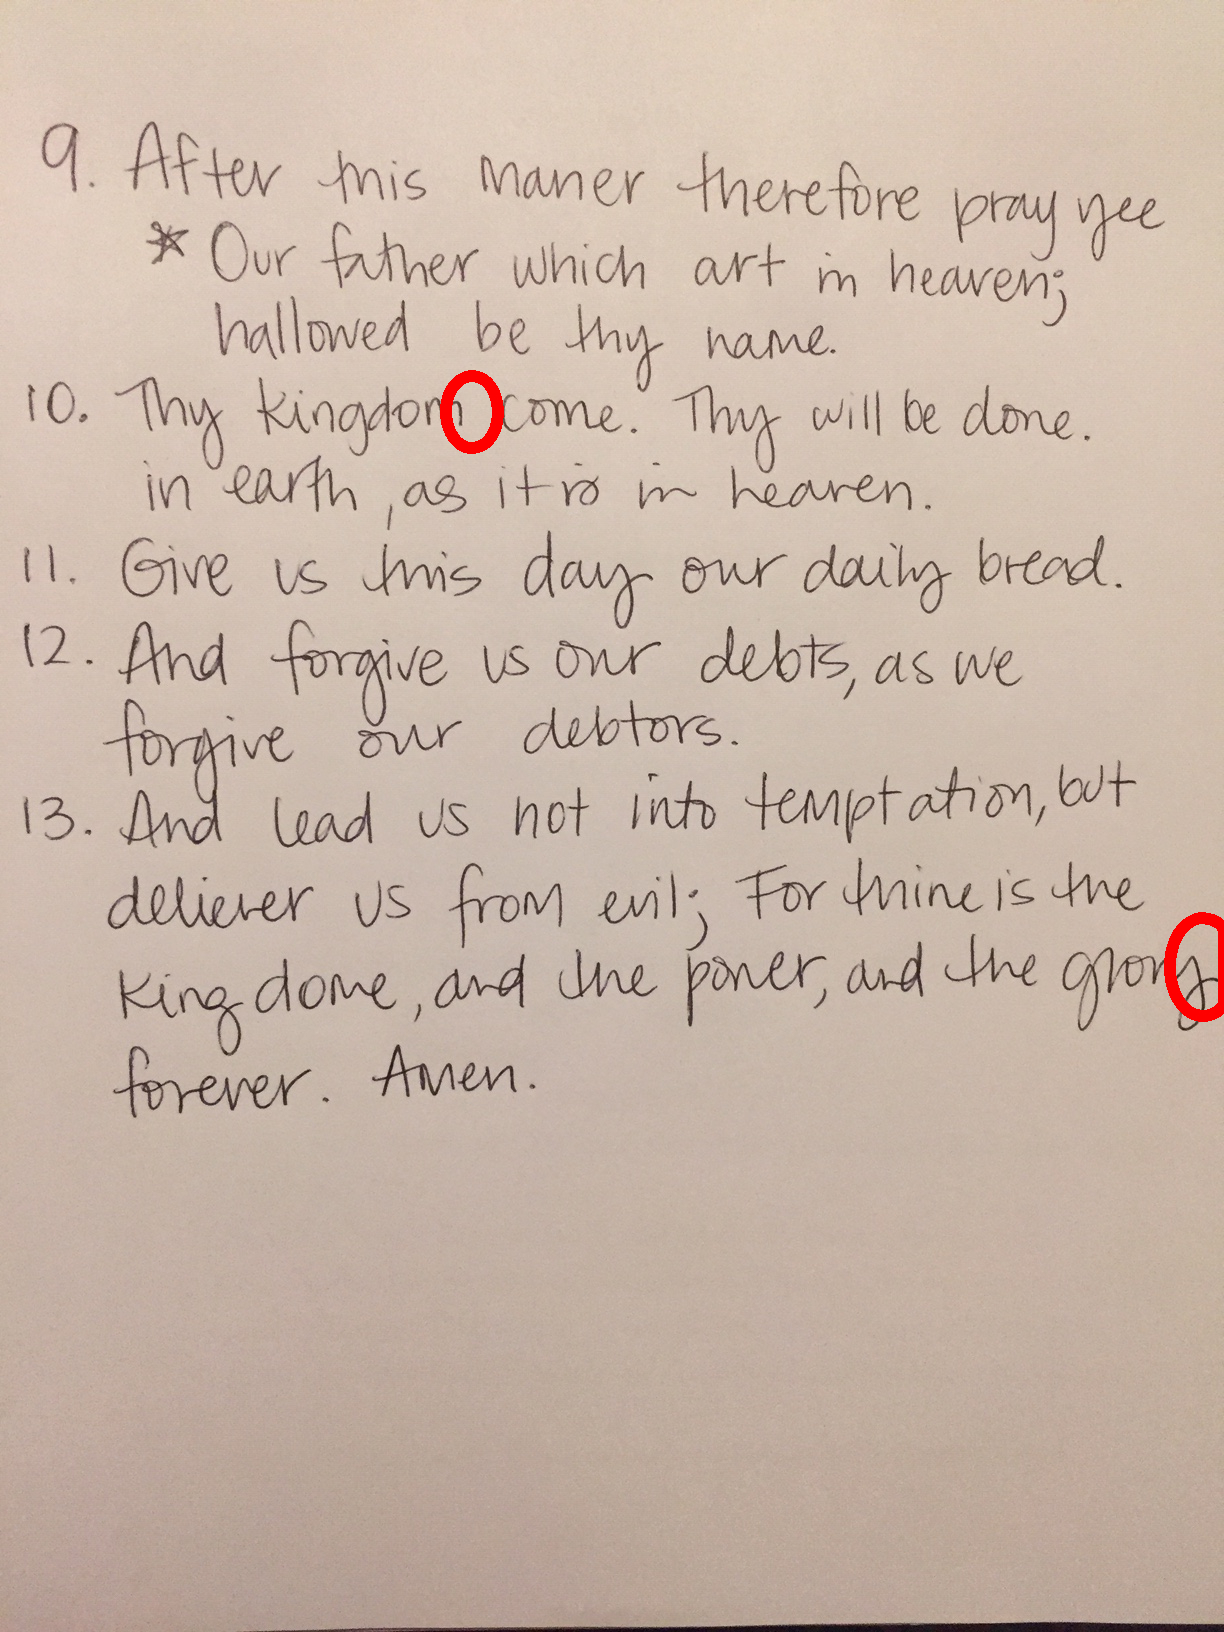 9. After this maner therefore pray yee
* Our father which art in heaven;
hallowed be thy name.
10. Thy kingdom come. Thy will be done.
in earth, as it is in heaven.
11. Give us this day our daily bread.
12. And forgive us our debts, as we
forgive our debtors.
13. And lead us not into temptation, but
deliever us from evil; For thine is the
kingdome, and the power, and the glory
forever. Amen.